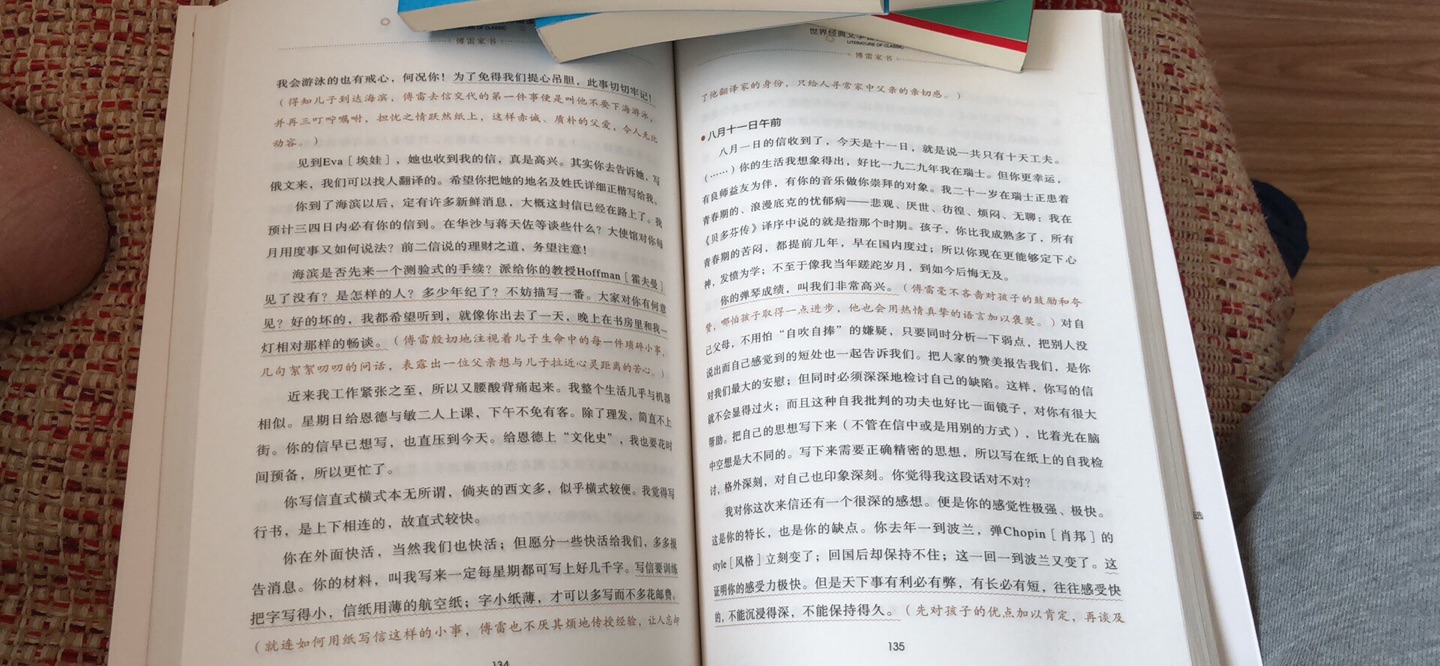 ·傅雷家书·
我会游泳的也有戒心，何况你！为了免得我们提心吊胆，此事切切牢记！
（得知儿子到达海滨，傅雷去信交代的第一件事便是叫他不要下海游泳，
并再三叮咛嘱咐，担忧之情跃然纸上，这样赤诚、质朴的父爱，令人无比
动容。）
见到Eva［埃娃］，她也收到我的信，真是高兴。其实你去告诉她，写
俄文来，我们可以找人翻译的。希望你把她的地名及姓氏详细正楷写给我。
你到了海滨以后，定有许多新鲜消息，大概这封信已经在路上了。我
预计三四日内必有你的信到。在华沙与蒋天佐等谈些什么？大使馆对你每
月用度事又如何说法？前二信说的理财之道，务望注意！
海滨是否先来一个测验式的手续？派给你的教授Hoffman［霍夫曼］
见了没有？是怎样的人？多少年纪了？不妨描写一番。大家对你有何意
见？好的坏的，我都希望听到，就像你出去了一天，晚上在书房里和我一
灯相对那样的畅谈。（傅雷殷切地注视着儿子生命中的每一件琐碎小事，
几句絮絮叨叨的问话，表露出一位父亲想与儿子拉近心灵距离的苦心。）
近来我工作紧张之至，所以又腰酸背痛起来。我整个生活几乎与机器
相似。星期日给恩德与敏二人上课，下午不免有客。除了理发，简直不上
街。你的信早已想写，也直压到今天。给恩德上“文化史”，我也要花时
间预备，所以更忙了。
你写信直式横式本无所谓，倘夹的西文多，似乎横式较便。我觉得写
行书，是上下相连的，故直式较快。
你在外面快活，当然我们也快活；但愿分一些快活给我们，多多报
告消息。你的材料，叫我写来一定每星期都可写上好几千字。写信要训练
把字写得小，信纸用薄的航空纸；字小纸薄，才可以多写而不多花邮费。
（就连如何用纸写信这样的小事，傅雷也不厌其烦地传授经验，让人忘却
134
世界经典文学
LITERATURE OF CLASSIC
·傅雷家书·
了他翻译家的身份，只给人寻常家中父亲的亲切感。）
●八月十一日午前
八月一日的信收到了，今天是十一日，就是说一共只有十天工夫。
（……）你的生活我想象得出，好比一九二九年我在瑞士。但你更幸运，
有良师益友为伴，有你的音乐做你崇拜的对象。我二十一岁在瑞士正患着
青春期的、浪漫底克的忧郁病——悲观、厌世、彷徨、烦闷、无聊：我在
《贝多芬传》译序中说的就是指那个时期。孩子，你比我成熟多了，所有
青春期的苦闷，都提前几年，早在国内度过；所以你现在更能够定下心
神，发愤为学；不至于像我当年蹉跎岁月，到如今后悔无及。
你的弹琴成绩，叫我们非常高兴。（傅雷毫不吝啬对孩子的鼓励和夸
赞，哪怕孩子取得一点进步，他也会用热情真挚的语言加以褒奖。）对自
己父母，不用怕“自吹自捧”的嫌疑，只要同时分析一下弱点，把别人没
说出而自己感觉到的短处也一起告诉我们。把人家的赞美报告我们，是你
对我们最大的安慰；但同时必须深深地检讨自己的缺陷。这样，你写的信
就不会显得过火；而且这种自我批判的功夫也好比一面镜子，对你有很大
帮助。把自己的思想写下来（不管在信中或是用别的方式），比着光在脑
中空想是大不同的。写下来需要正确精密的思想，所以写在纸上的自我检
讨，格外深刻，对自己也印象深刻。你觉得我这段话对不对？
我对你这次来信还有一个很深的感想。便是你的感觉性极强、极快。
这是你的特长，也是你的缺点。你去年一到波兰，弹Chopin［肖邦］的
style［风格］立刻变了；回国后却保持不住；这一回一到波兰又变了。这
证明你的感受力极快。但是天下事有利必有弊，有长必有短，往往感受快
的，不能沉浸得深，不能保持得久。（先对孩子的优点加以肯定，再谈及
135